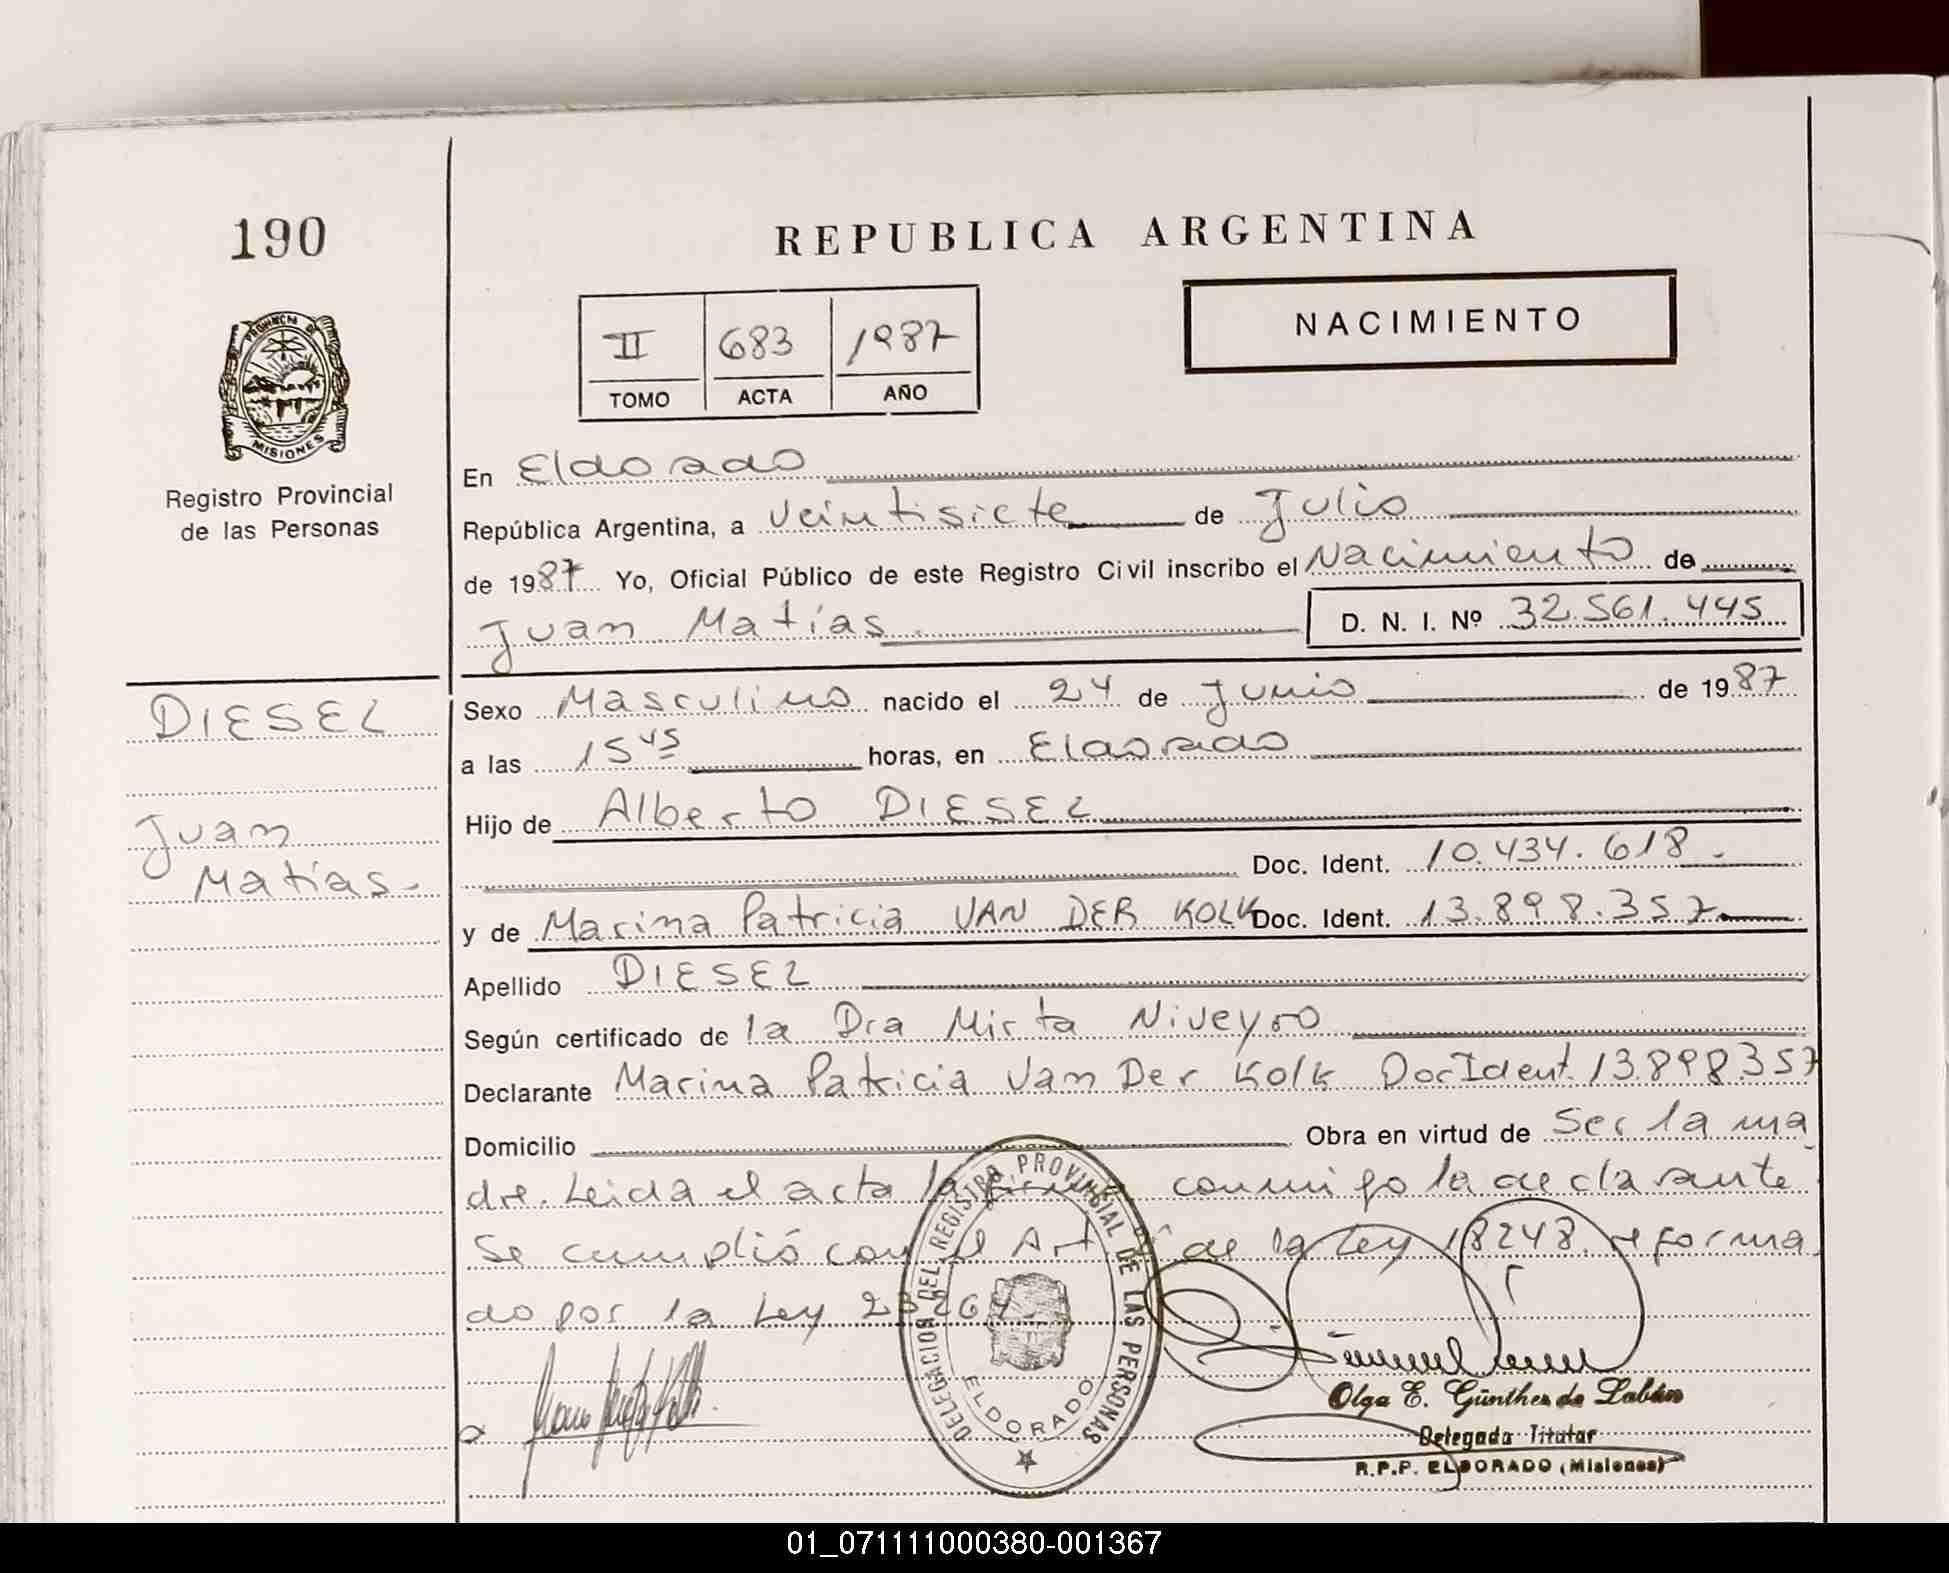 190
REPUBLICA ARGENTINA
NACIMIENTO
II 683 1987
TOMO ACTA AÑO
PROVINCIA DE
MISIONES
Registro Provincial
de las Personas
En Eldorado
República Argentina, a veintisiete de Julio
de 1987 Yo, Oficial Público de este Registro Civil inscribo el Nacimiento de
Juan Matías D. N. I. Nº 32.561.445
DIESEL
Juan
Matías.-
Sexo Masculino nacido el 24 de Junio de 1987
a las 15 45 horas, en Eldorado
Hijo de Alberto DIESEL
Doc. Ident. 10.434.618.-
y de Marina Patricia VAN DER KOLK Doc. Ident. 13.898.357
Apellido DIESEL
Según certificado de la Dra Mirta Niveyro
Declarante Marina Patricia Van Der Kolk Doc Ident. 13.898.357
Domicilio Obra en virtud de ser la ma
dre. Leida el acta la firma conmigo la declarante
Se cumplió con el Art de la Ley 18248. reforma
do por la Ley 23264.
DELEGACION DEL REGISTRO PROVINCIAL DE LAS PERSONAS
ELDORADO
Olga E. Günther de Labán
Delegada Titular
R.P.P. ELDORADO (Misiones)
01_071111000380-001367